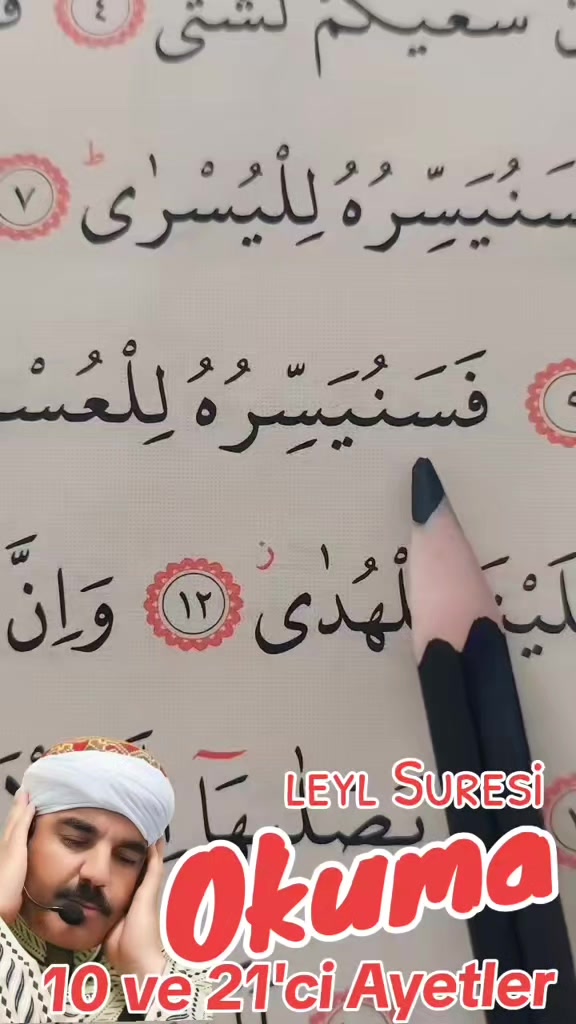 سَعْيَكُمْ لَشَتّٰى ٤
فَسَنُيَسِّرُهُ لِلْيُسْرٰىۜ ط ٧
٩ فَسَنُيَسِّرُهُ لِلْعُسْ
لَلْهُدٰى ز ١٢ وَاِنَّ
يَصْلٰيهَٓا
LEYL SURESİ
Okuma
10 ve 21'ci Ayetler